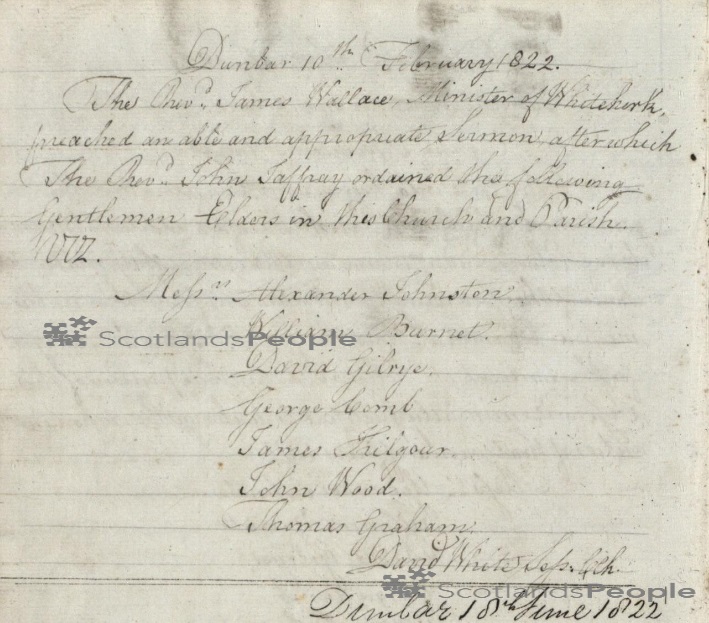 Dunbar 10th February 1822.
The Revd. James Wallace, Minister of Whitekirk,
preached an able and appropriate Sermon, after which
The Revd. John Jaffray ordained the following
Gentlemen Elders in this Church and Parish.
Viz.
Messrs. Alexander Johnston.
William Burnet.
ScotlandsPeople
David Gilrye.
George Comb
James Kilgour.
John Wood.
Thomas Graham.
David White Sess. Clk.
ScotlandsPeople
Dunbar 18th June 1822